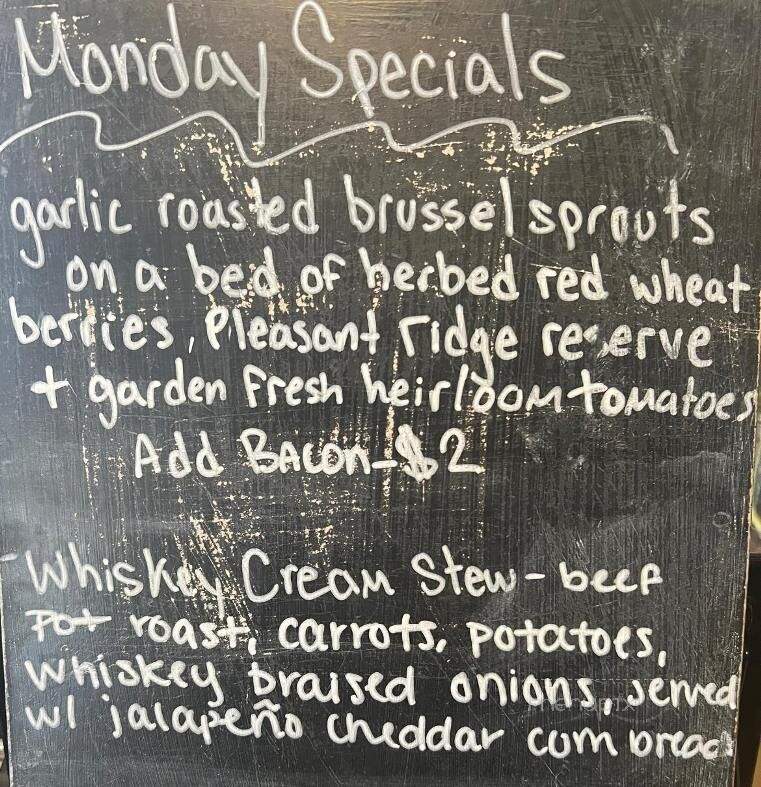 Monday Specials
garlic roasted brussel sprouts
on a bed of herbed red wheat
berries, Pleasant ridge reserve
+ garden fresh heirloom tomatoes
Add Bacon - $2
Whiskey Cream Stew - beef
Pot roast, carrots, potatoes,
whiskey braised onions, served
w/ jalapeño cheddar corn bread